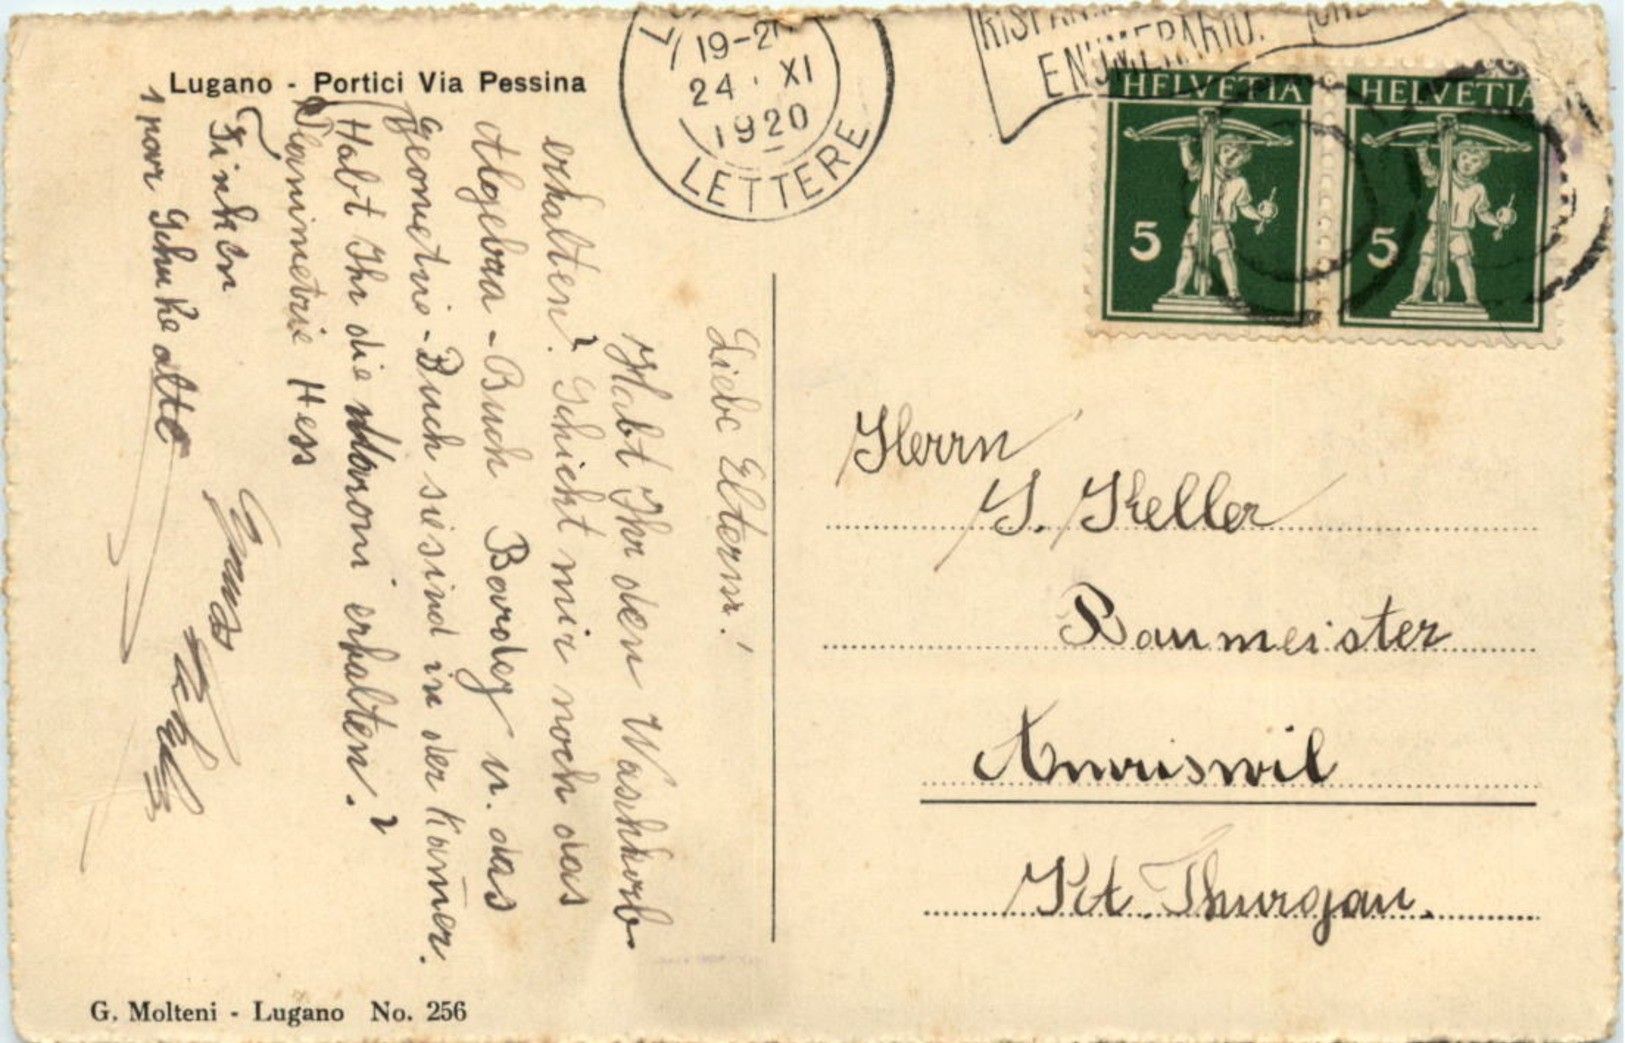 Lugano - Portici Via Pessina
19-2
24 · XI
1920
LETTERE
ENUMERARIO.
HELVETIA
5
HELVETIA
5
Liebe Eltern!
Habt Ihr den Waschkorb
erhalten? Schickt mir noch das
Algebra-Buch Bardey u. das
Geometrie-Buch sie sind in der Kamer.
Habt Ihr die Maroni erhalten?
Planimetrie Hess
Finken
1 par Schuhe alte
Gruss
Herrn
J. Keller
Baumeister
Amriswil
Kt. Thurgau.
G. Molteni - Lugano No. 256